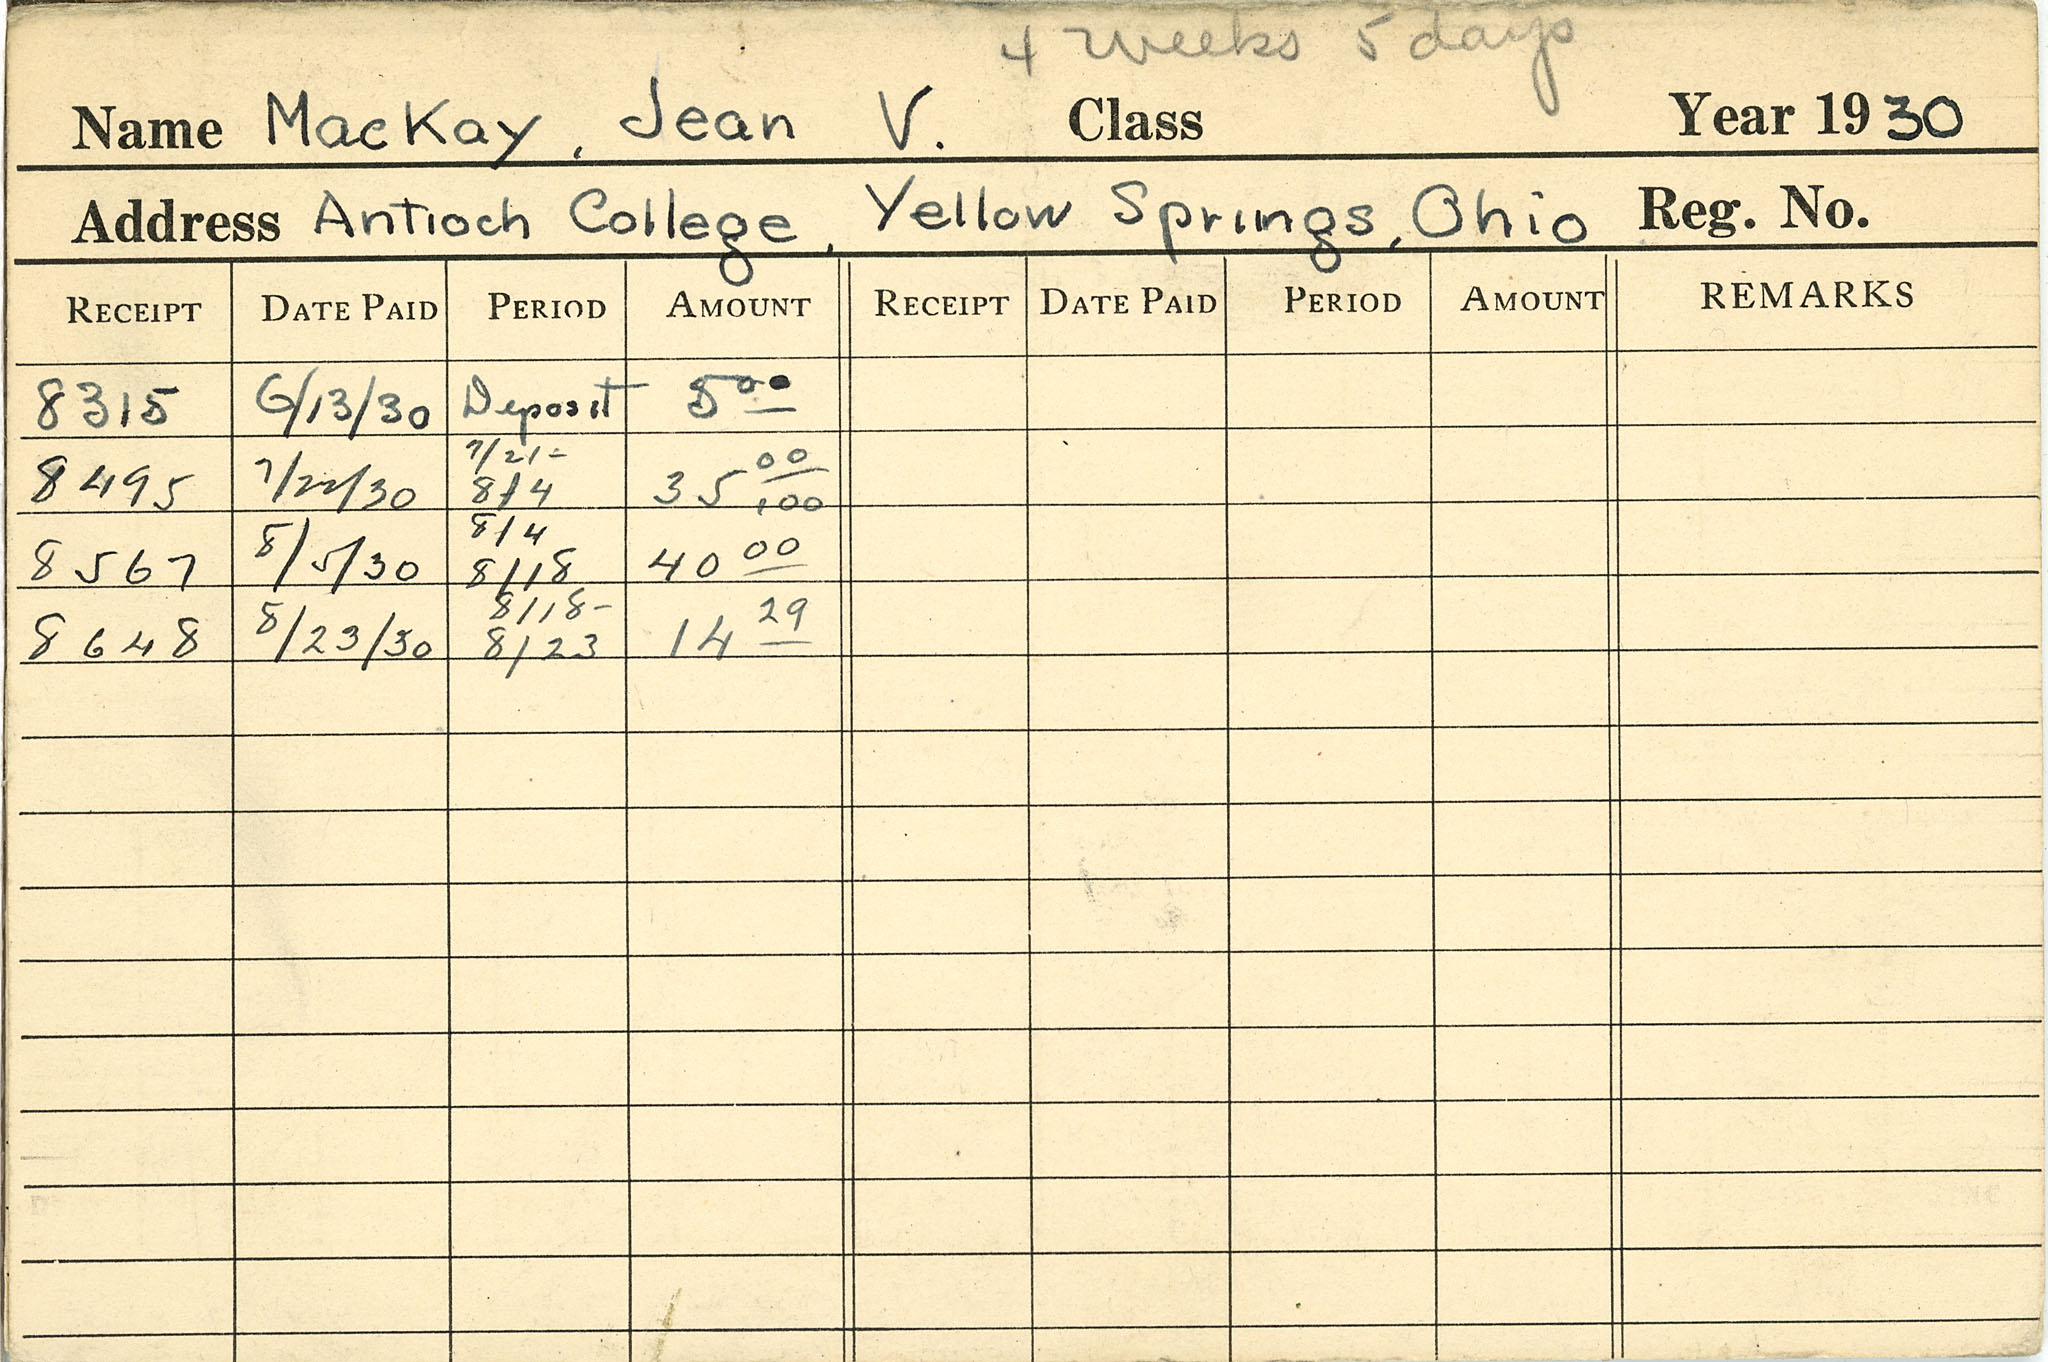 4 weeks 5 days
Name MacKay, Jean V. Class Year 1930
Address Antioch College, Yellow Springs, Ohio Reg. No.
RECEIPT DATE PAID PERIOD AMOUNT RECEIPT DATE PAID PERIOD AMOUNT REMARKS
8315 6/13/30 Deposit 5 00
7/21-
8495 7/22/30 8/4 35 00/100
8/4
8567 8/5/30 8/18 40 00
8/18-
8648 8/23/30 8/23 14 29